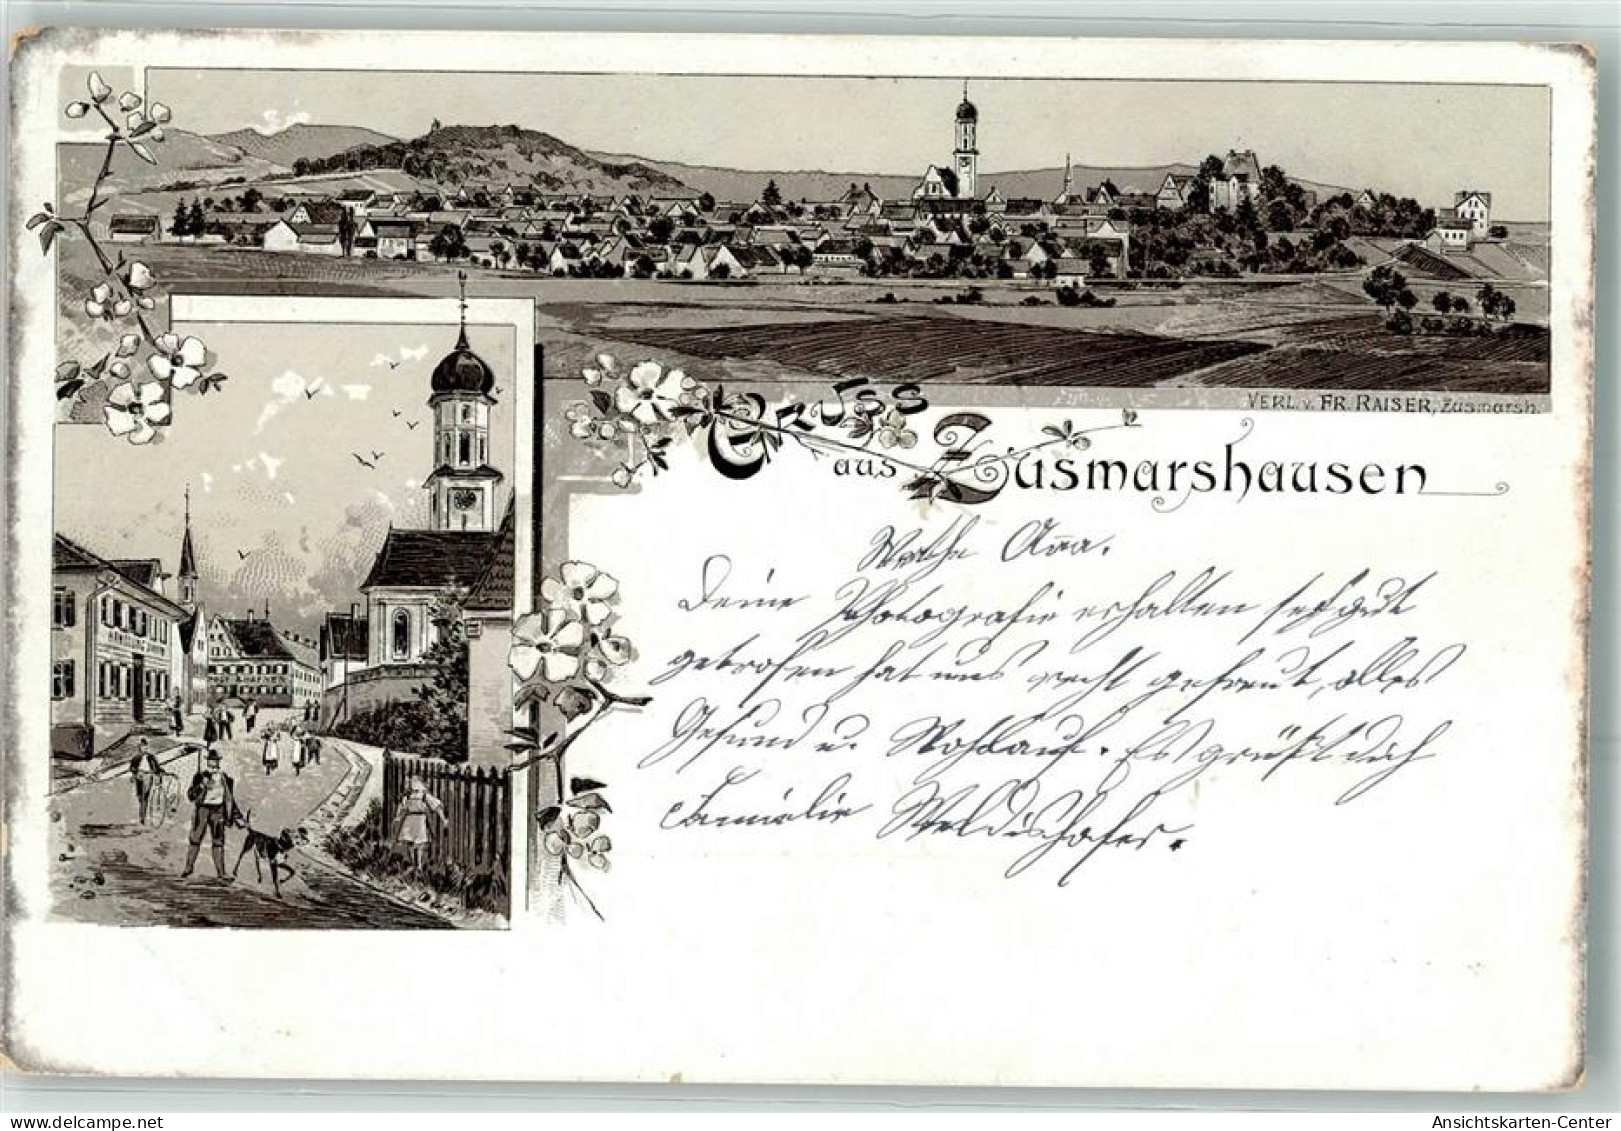 VERL. v. FR. RAISER, Zusmarsh.
Gruss
aus Zusmarshausen
Werthe Anna.
Deine Photografie erhalten sehr gut
getrofen hat uns recht gefreut, alles
Gesund u. Wohlauf. Es grüßt dich
Familie
Ansichtskarten-Center